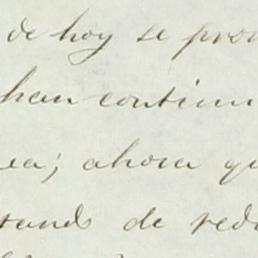 de hoy se pron
han continu
ea; ahora qu
rands de redu